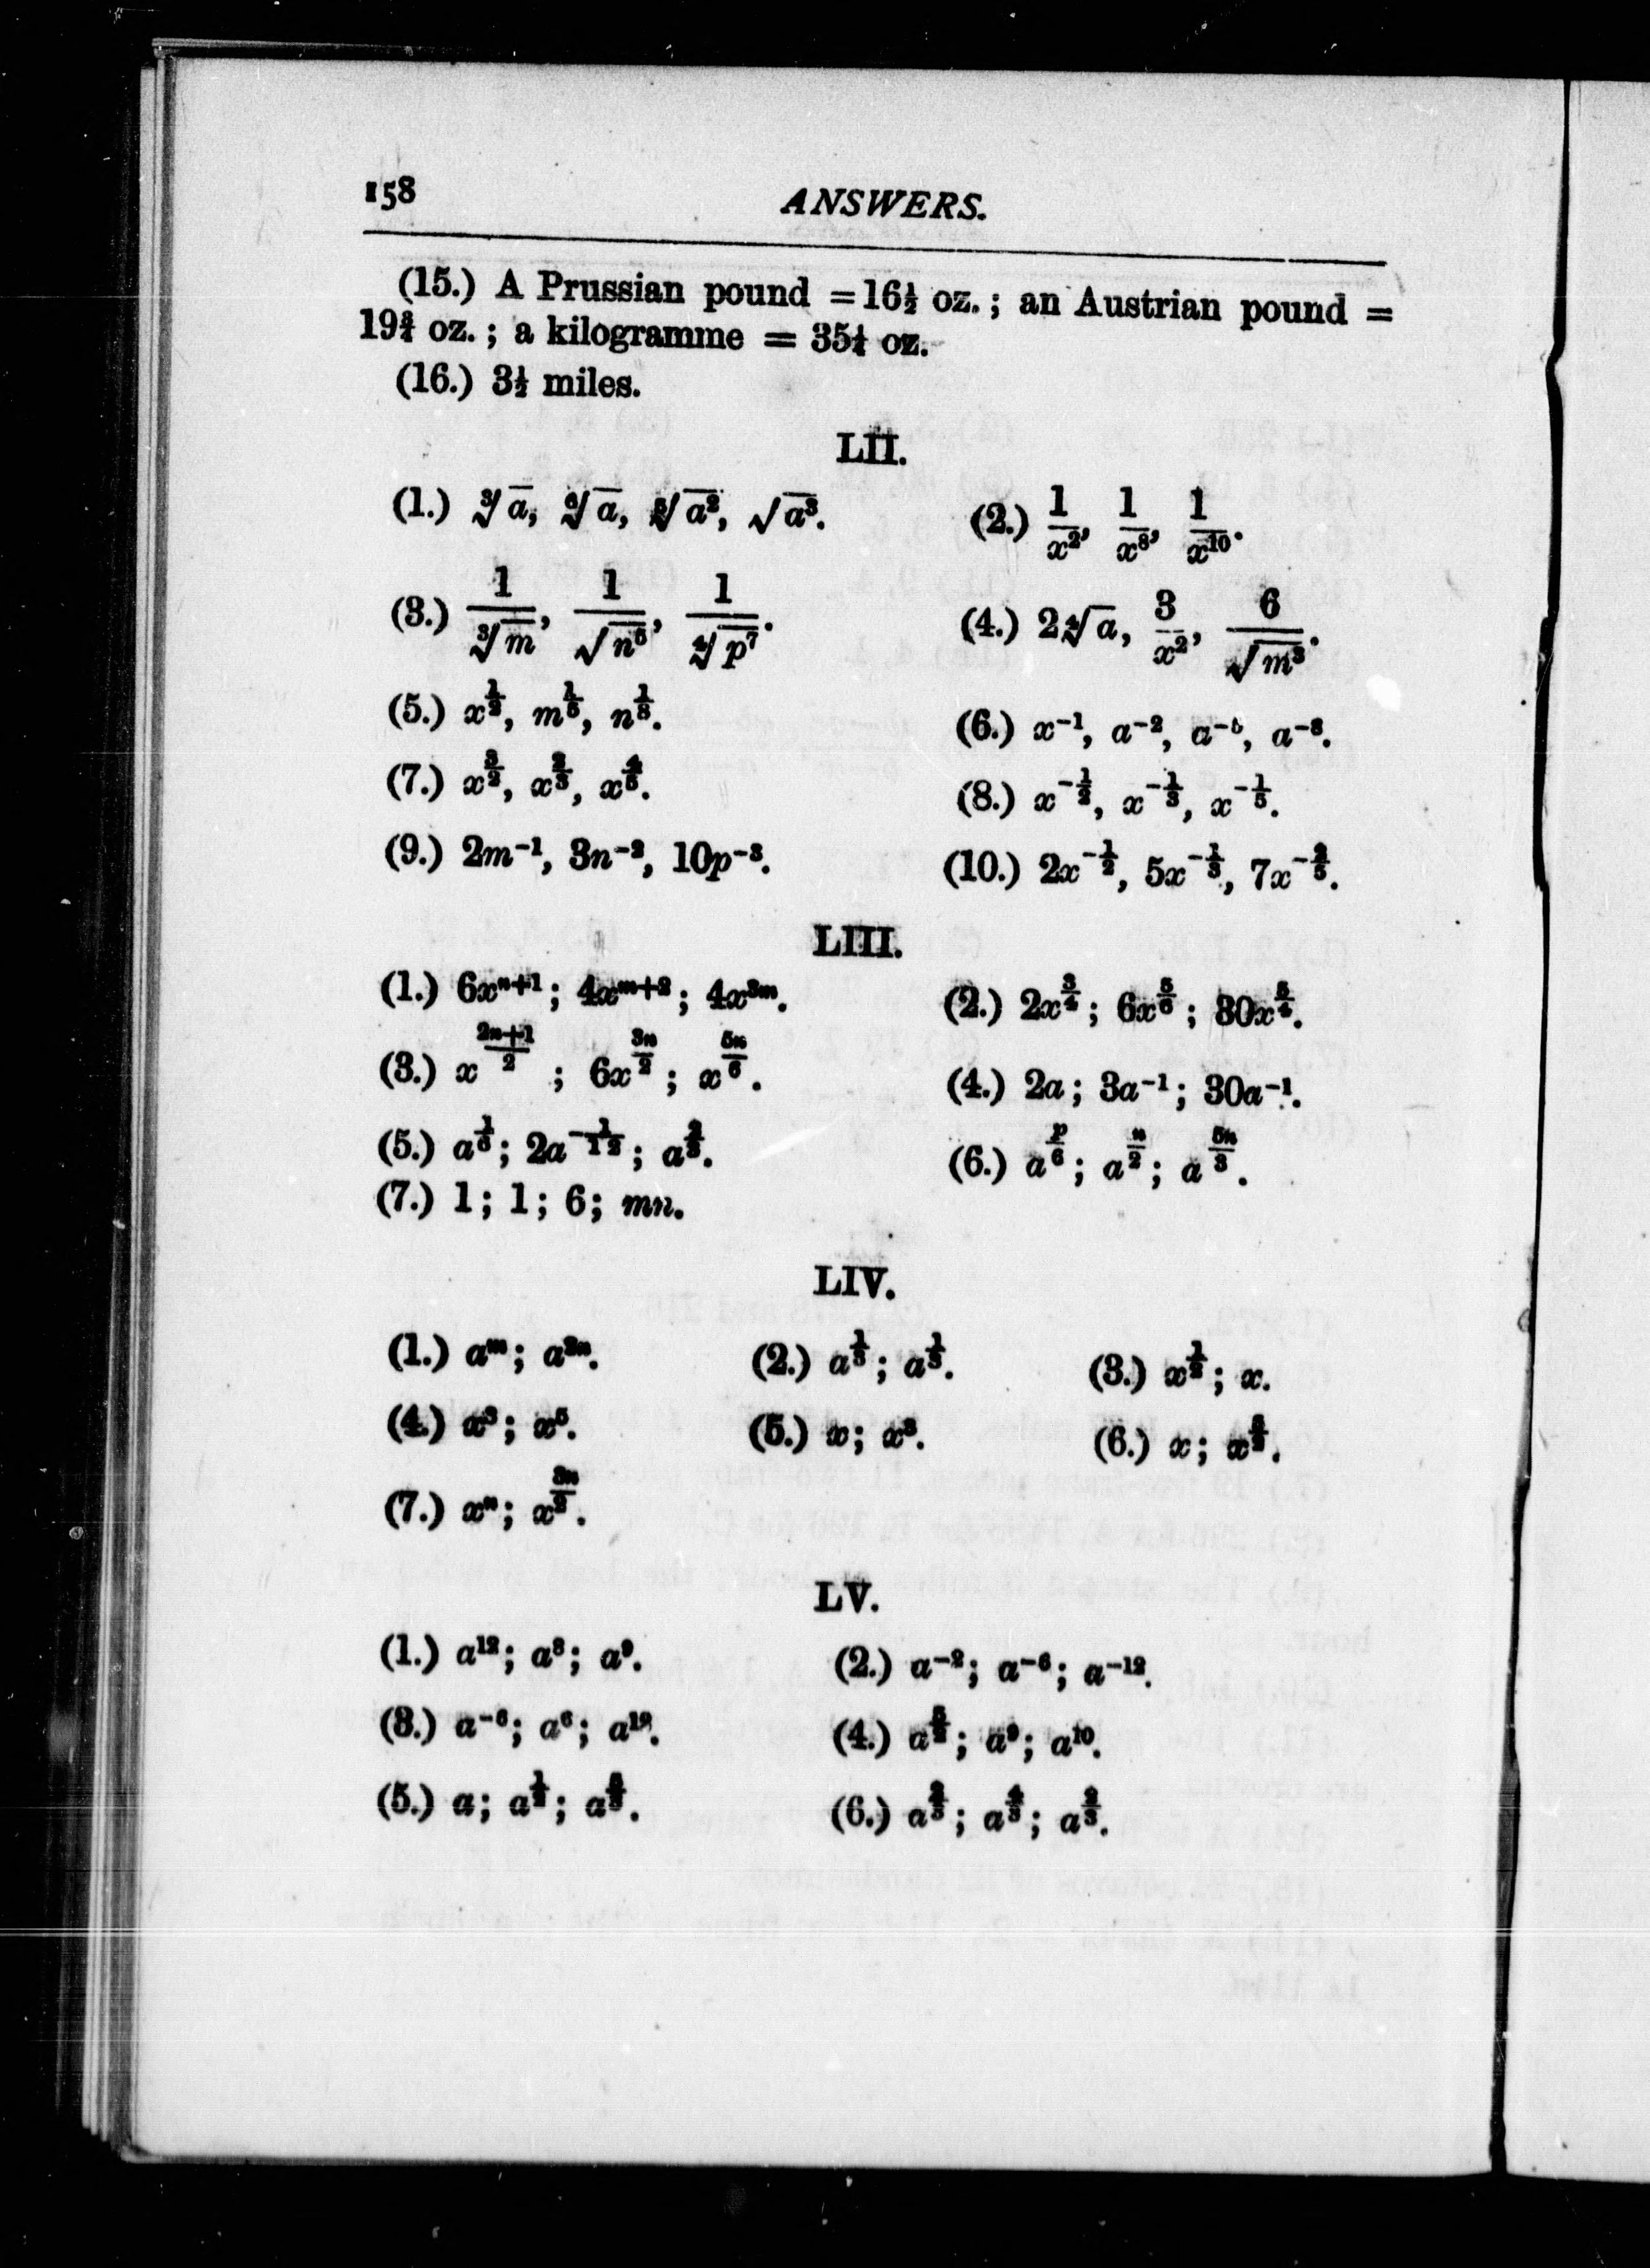 158 ANSWERS.
(15.) A Prussian pound = 16½ oz.; an Austrian pound =
19¾ oz.; a kilogramme = 35¼ oz.
(16.) 3½ miles.
LII.
(1.) ∛a, ⁶√a, √a², √a³. (2.) 1/x², 1/x⁸, 1/x¹⁰.
(3.) 1/∛m, 1/√n⁵, 1/∜p⁷. (4.) 2∜a, 3/x², 6/√m³.
(5.) x^(1/2), m^(1/5), n^(1/8). (6.) x⁻¹, a⁻², a⁻⁵, a⁻⁸.
(7.) x^(3/2), x^(2/3), x^(4/5). (8.) x^(-1/2), x^(-1/3), x^(-1/5).
(9.) 2m⁻¹, 3n⁻², 10p⁻³. (10.) 2x^(-1/2), 5x^(-1/3), 7x^(-2/5).
LIII.
(1.) 6xⁿ⁺¹; 4x^(m+2); 4x^(3m). (2.) 2x^(3/4); 6x^(5/6); 30x^(5/4).
(3.) x^((2n+1)/2); 6x^(3n/2); x^(5n/6). (4.) 2a; 3a⁻¹; 30a⁻¹.
(5.) a^(1/6); 2a^(-1/12); a^(2/3). (6.) a^(p/6); a^(n/2); a^(5n/3).
(7.) 1; 1; 6; mn.
LIV.
(1.) a^m; a^(2n). (2.) a^(1/3); a^(1/3). (3.) x^(1/2); x.
(4.) x³; x⁵. (5.) x; x³. (6.) x; x
(7.) xⁿ; x^(3n/2).
LV.
(1.) a¹²; a⁸; a⁹. (2.) a⁻²; a⁻⁶; a⁻¹².
(3.) a⁻⁶; a⁶; a¹². (4.) a^(5/2); a⁹; a¹⁰.
(5.) a; a^(1/2); a (6.) a^(2/3); a^(4/3); a^(2/3).